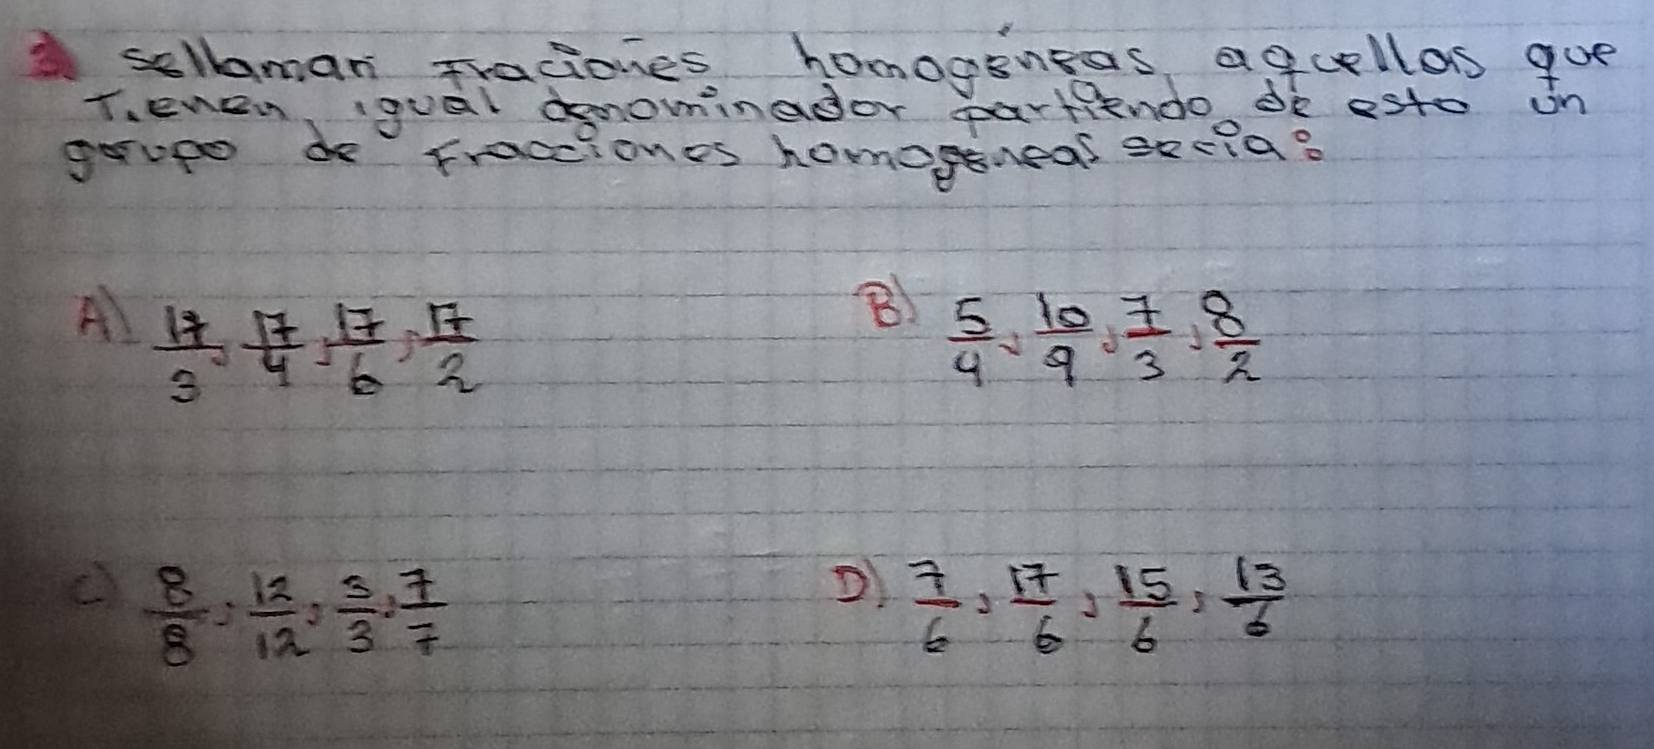 3 sellaman Fraciones homogéneas, aquellas que
Tienen igual denominador partiendo de esto un
grupo de Fracciones homogeneas seria:
A) 17/3, 17/4, 17/6, 17/2
B) 5/4, 10/9, 7/3, 8/2
C) 8/8, 12/12, 3/3, 7/7
D) 7/6, 17/6, 15/6, 13/6